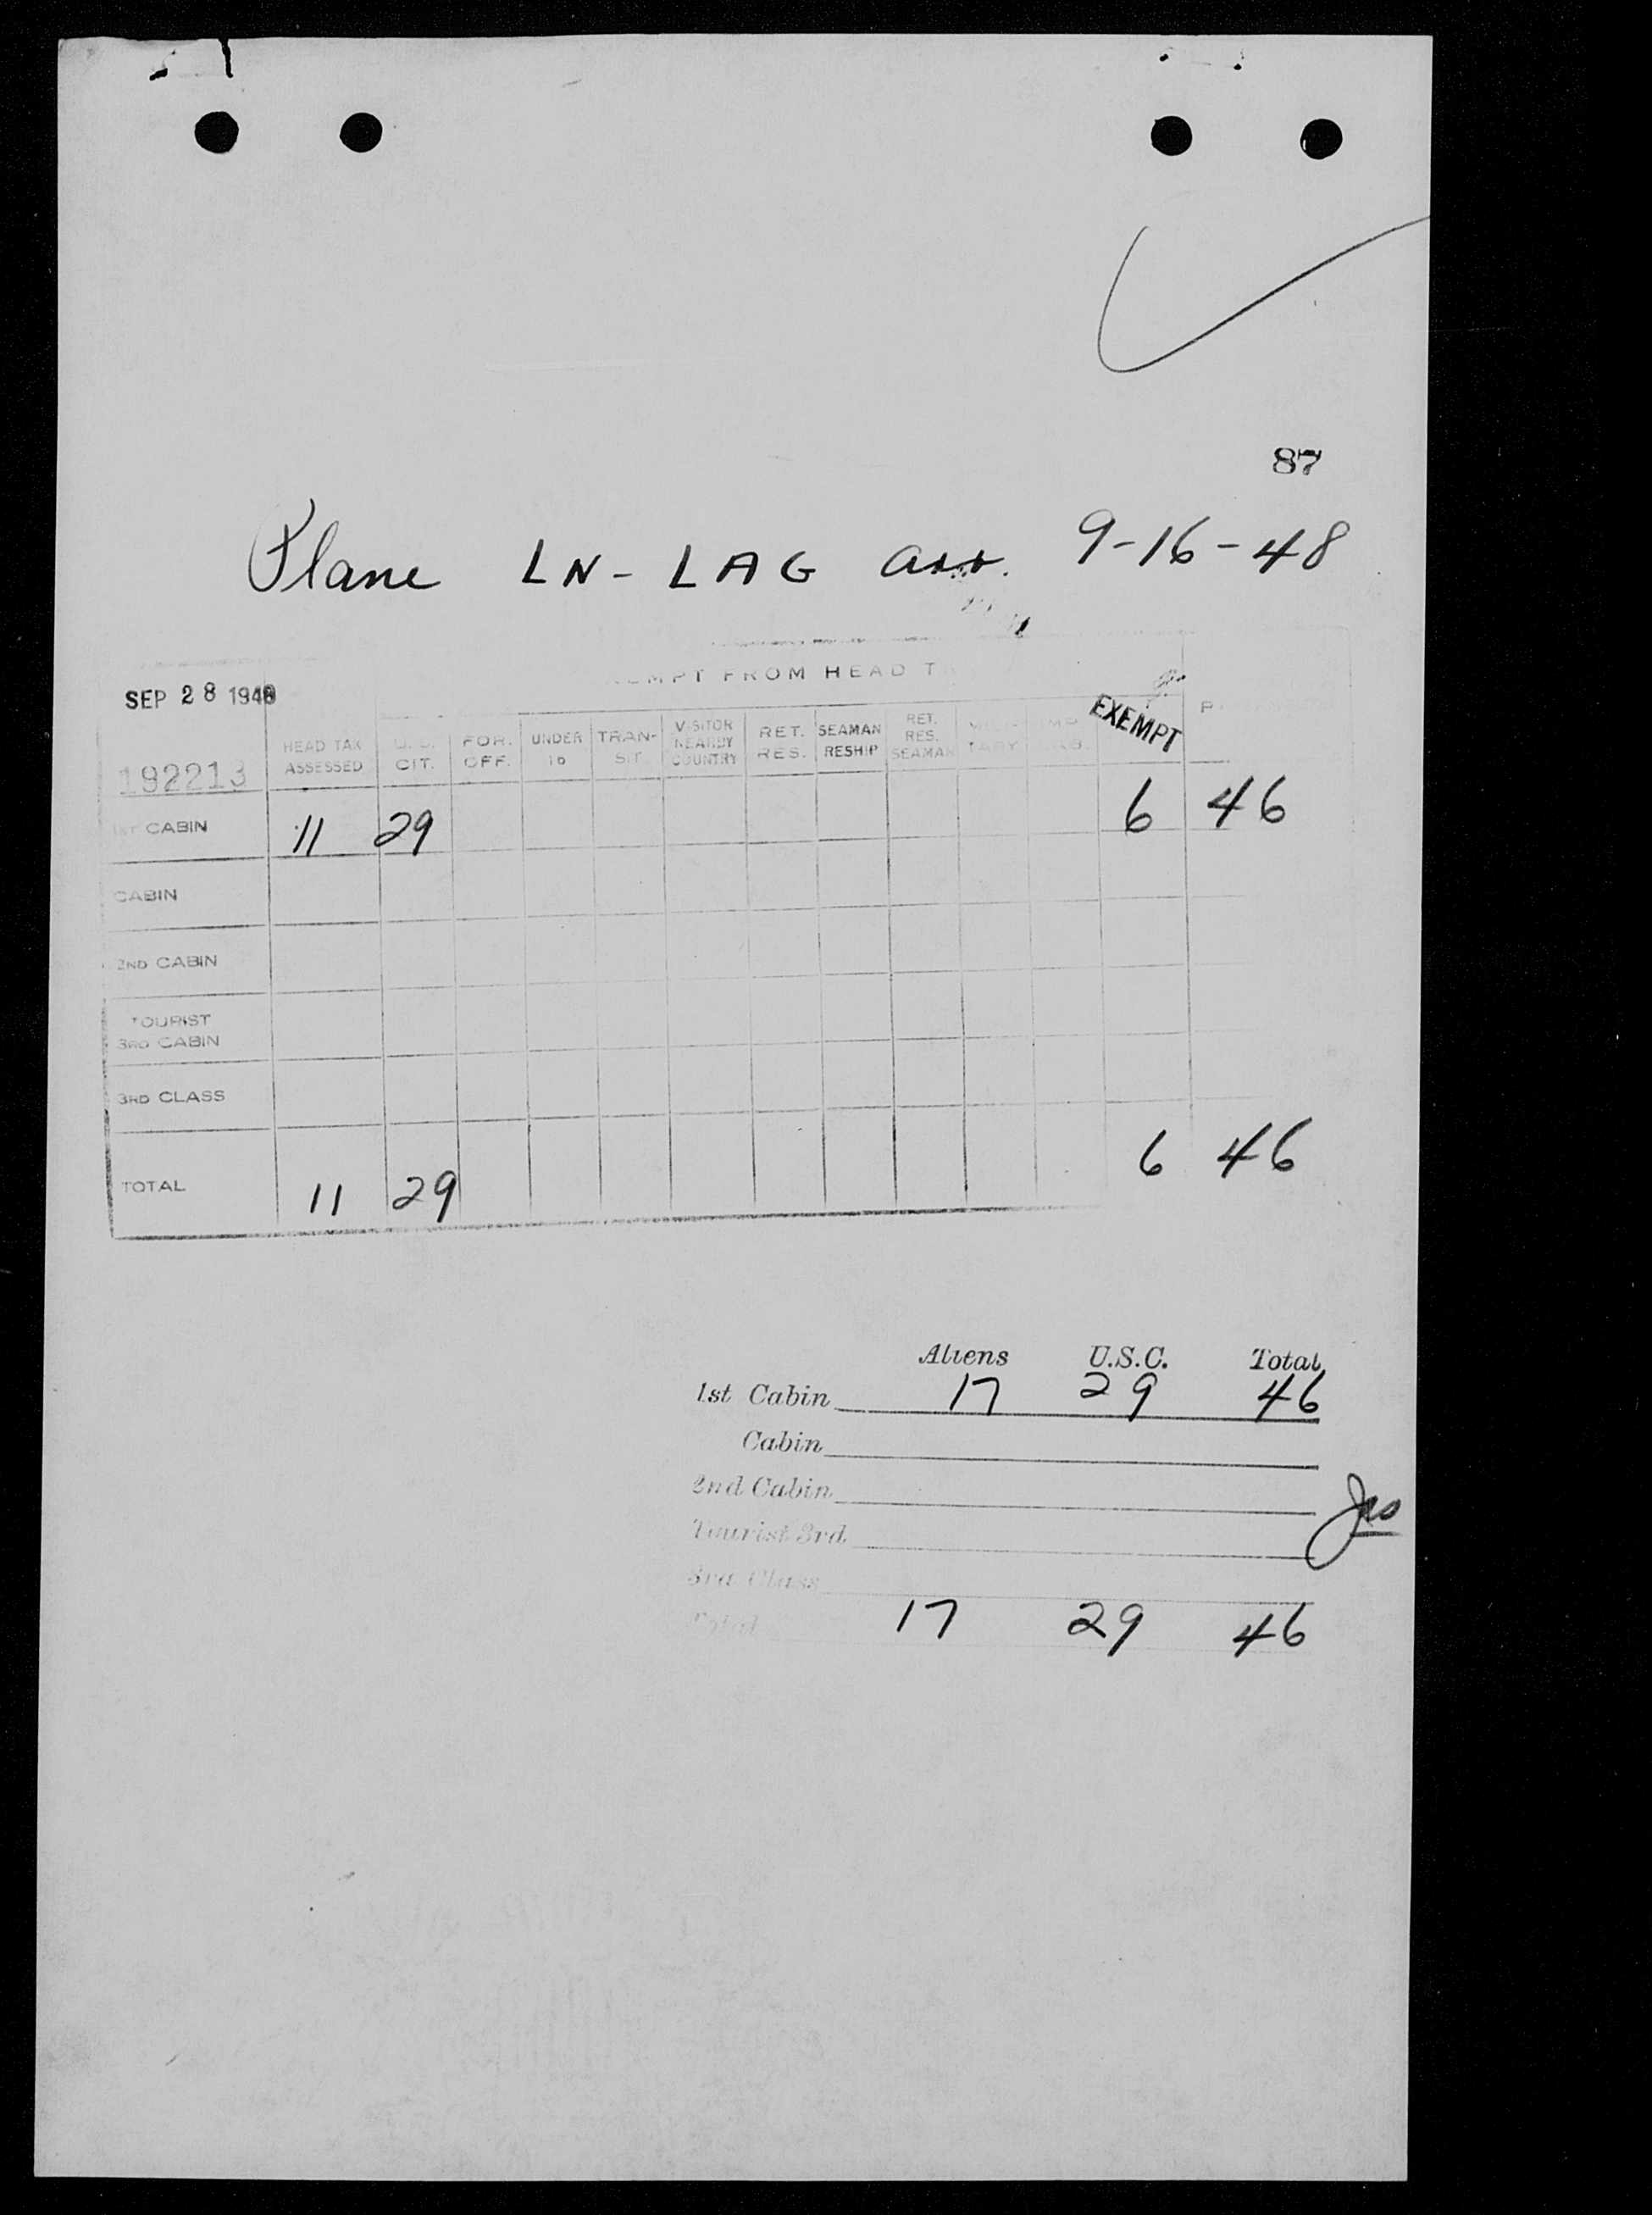 87
Plane LN-LAG arr. 9-16-48
EMPT FROM HEAD T
SEP 28 1948
192213
HEAD TAX ASSESSED U. S. CIT. FOR. OFF. UNDER 16 TRAN- SIT VISITOR NEARBY COUNTRY RET. RES. SEAMAN RESHIP RET. RES. SEAMAN EXEMPT
1ST CABIN 11 29 6 46
CABIN
2ND CABIN
TOURIST
3RD CABIN
3RD CLASS
TOTAL 11 29 6 46
Aliens U.S.C. Total
1st Cabin 17 29 46
Cabin
2nd Cabin
Tourist 3rd
3rd Class
Total 17 29 46